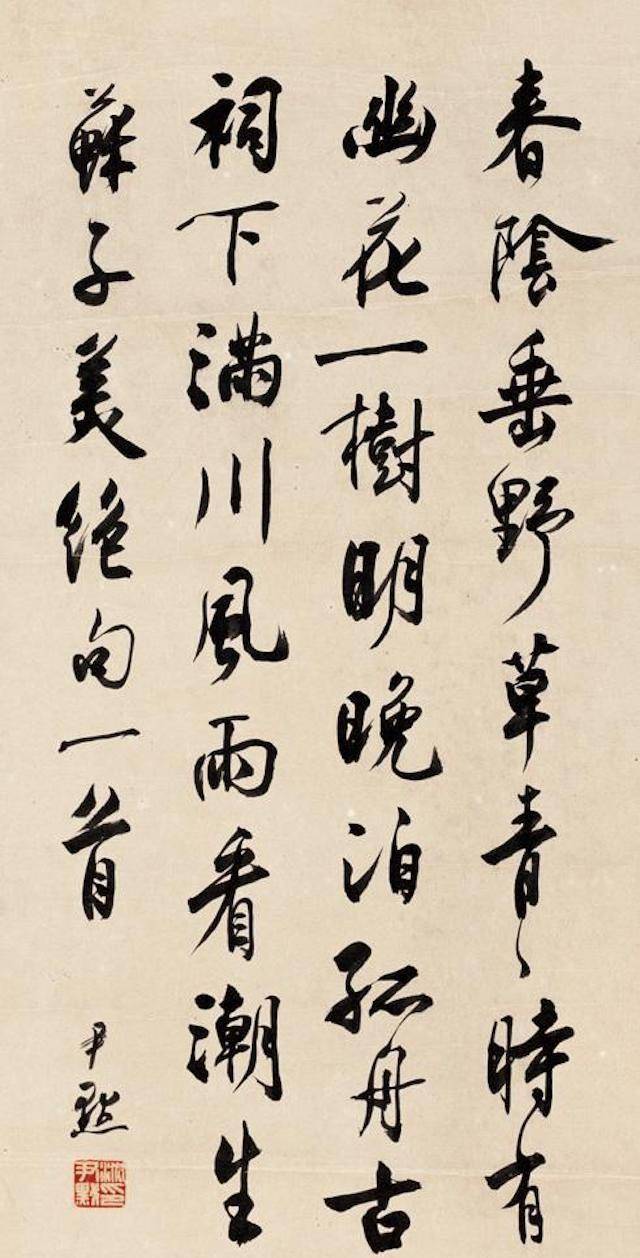 春陰垂野草青〻時有
幽花一樹明晚泊孤舟古
祠下滿川風雨看潮生
蘇子美絕句一首
尹默
沈印尹默